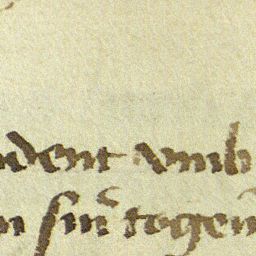 ident vmb
n sin̄ togen̄